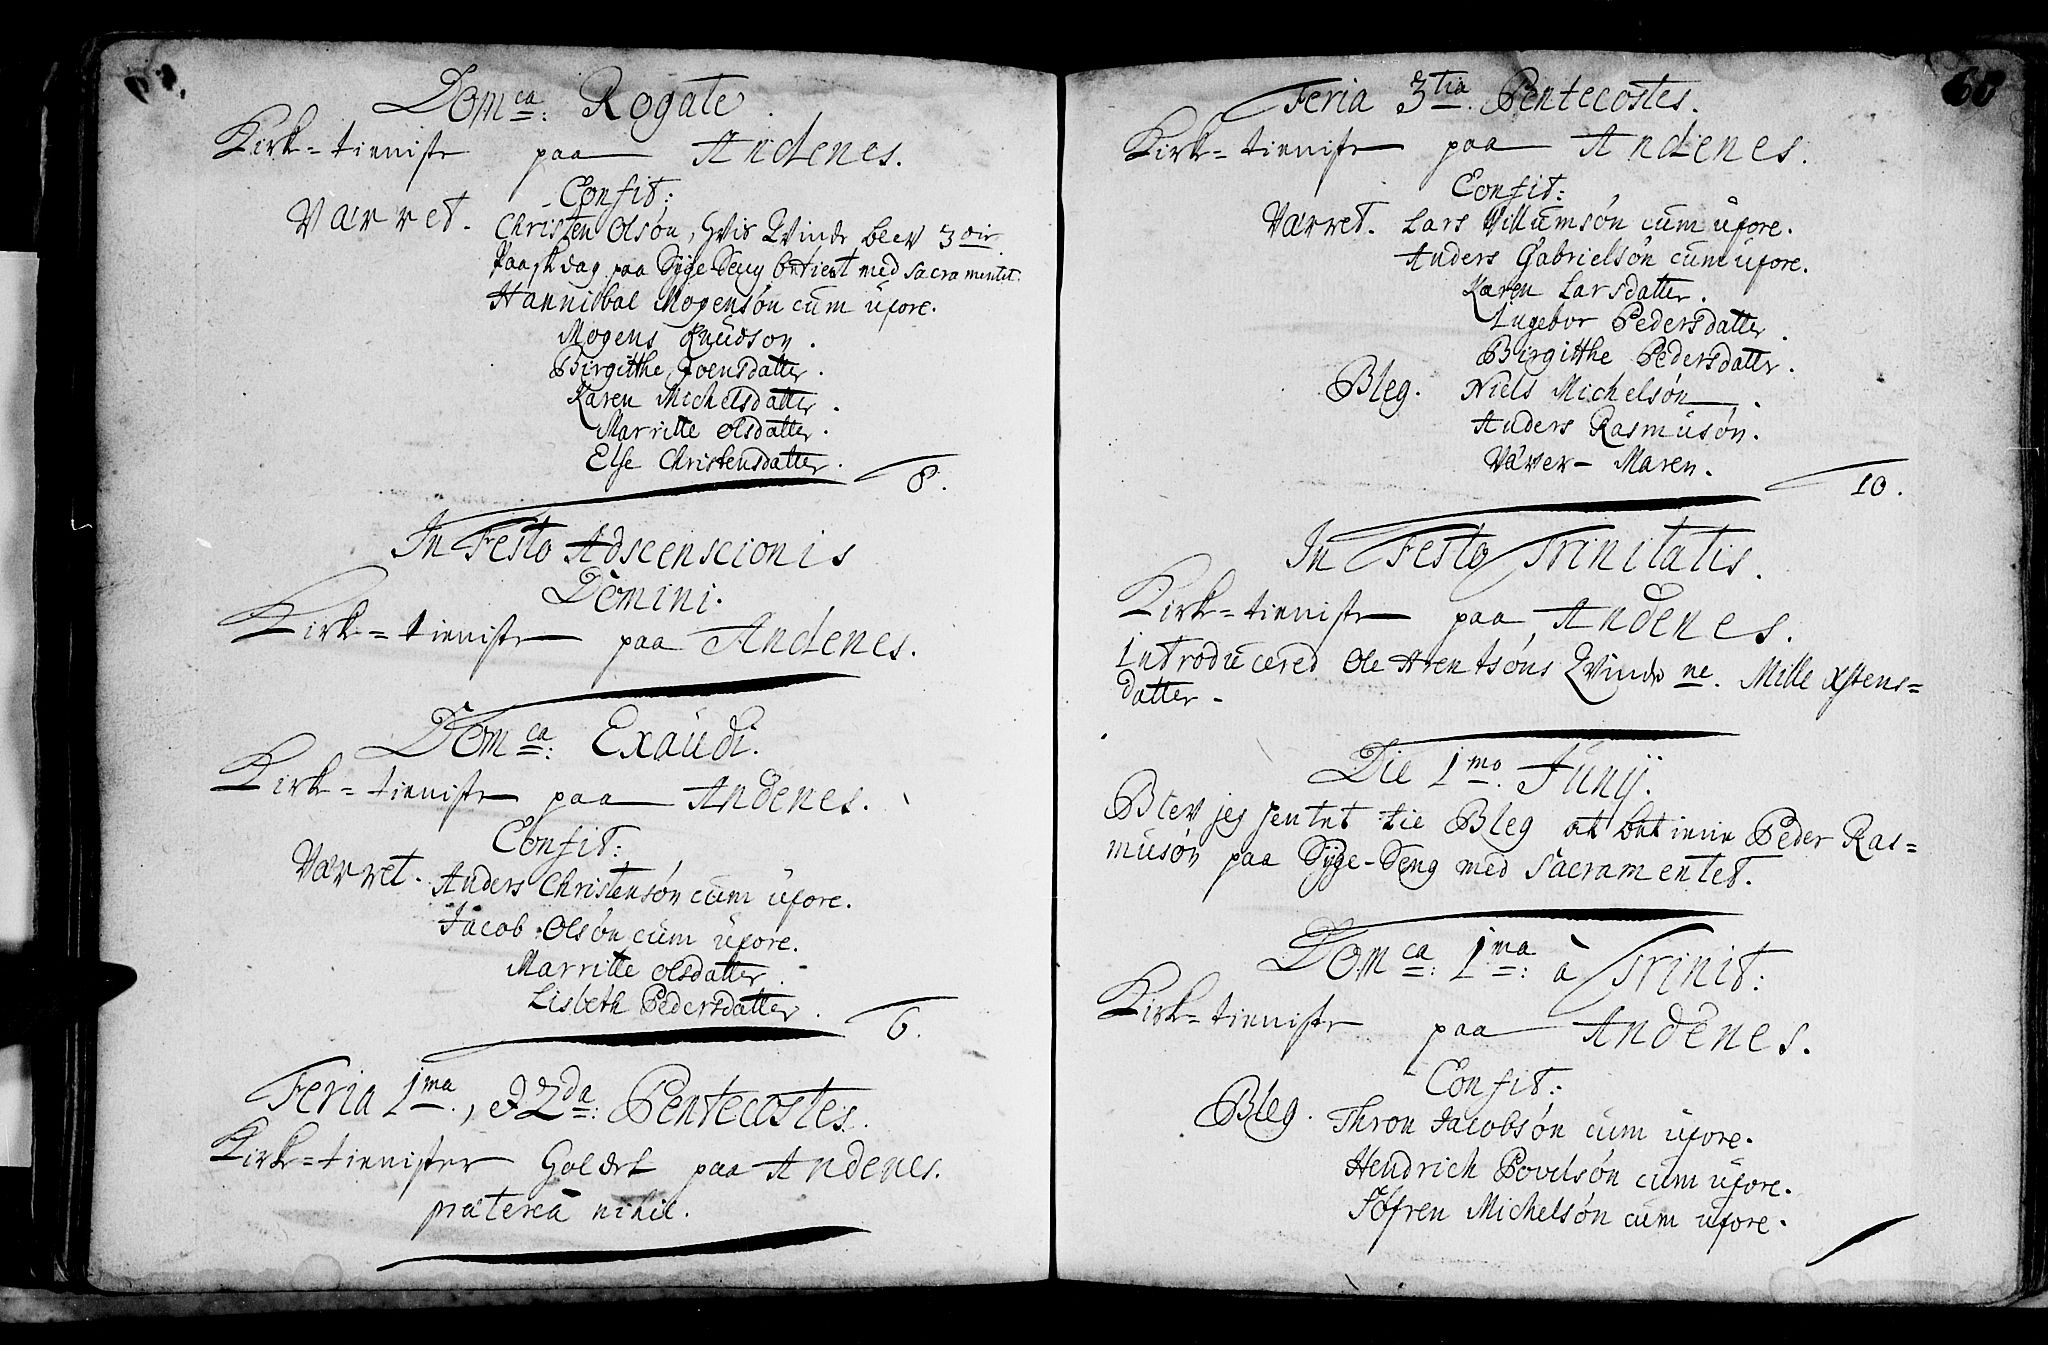 Dom ca: Rogate.
Kirk=tieniste paa Andenes.
Confit:
Værret. Christen Olsön, hvis Qvinde blev 3die
Paaskdag paa Syge-Seng betient med Sacramentet.
Hannibal Mogensön cum uxore.
Mogens Knudsøn.
Birgitthe Joensdatter.
Karen Michelsdatter.
Marritte Olsdatter.
Else Christensdatter.
8.
In Festo Adscenscionis
Domini.
Kirk=tieniste paa Andenes.
Dom ca: Exaudi.
Kirk=tieniste paa Andenes.
Confit:
Værret. Anders Christensön cum uxore.
Jacob Olsön cum uxore.
Marritte Olsdatter.
Lisbeth Pedersdatter.
6.
Feria 1ma., & 2da: Pentecostes.
Kirk=tienister holdet paa Andenes.
præterea nihil.
60
Feria 3tia Pentecostes.
Kirk=tieniste paa Andenes.
Confit:
Værret. Lars Villumsön cum uxore.
Anders Gabrielsön cum uxore.
Karen Larsdatter.
Ingebor Pedersdatter.
Birgitthe Pedersdatter.
Bleg. Niels Michelsön.
Anders Rasmusön.
Väver-Maren.
10.
In Festo Trinitatis.
Kirk=tieniste paa Andenes.
Introducered Ole Arentsöns Qvinde ne. Mille Xstens=
datter.
Die 1mo. Junij.
Blev jeg hentet til Bleg at betiene Peder Ras=
musön paa Syge-Seng med Sacramentet.
Dom ca: 1ma: à Trinit:
Kirk=tieniste paa Andenes.
Confit:
Bleg. Thron Jacobsön cum uxore.
Hendrich Povelsön cum uxore.
Söfren Michelsön cum uxore.